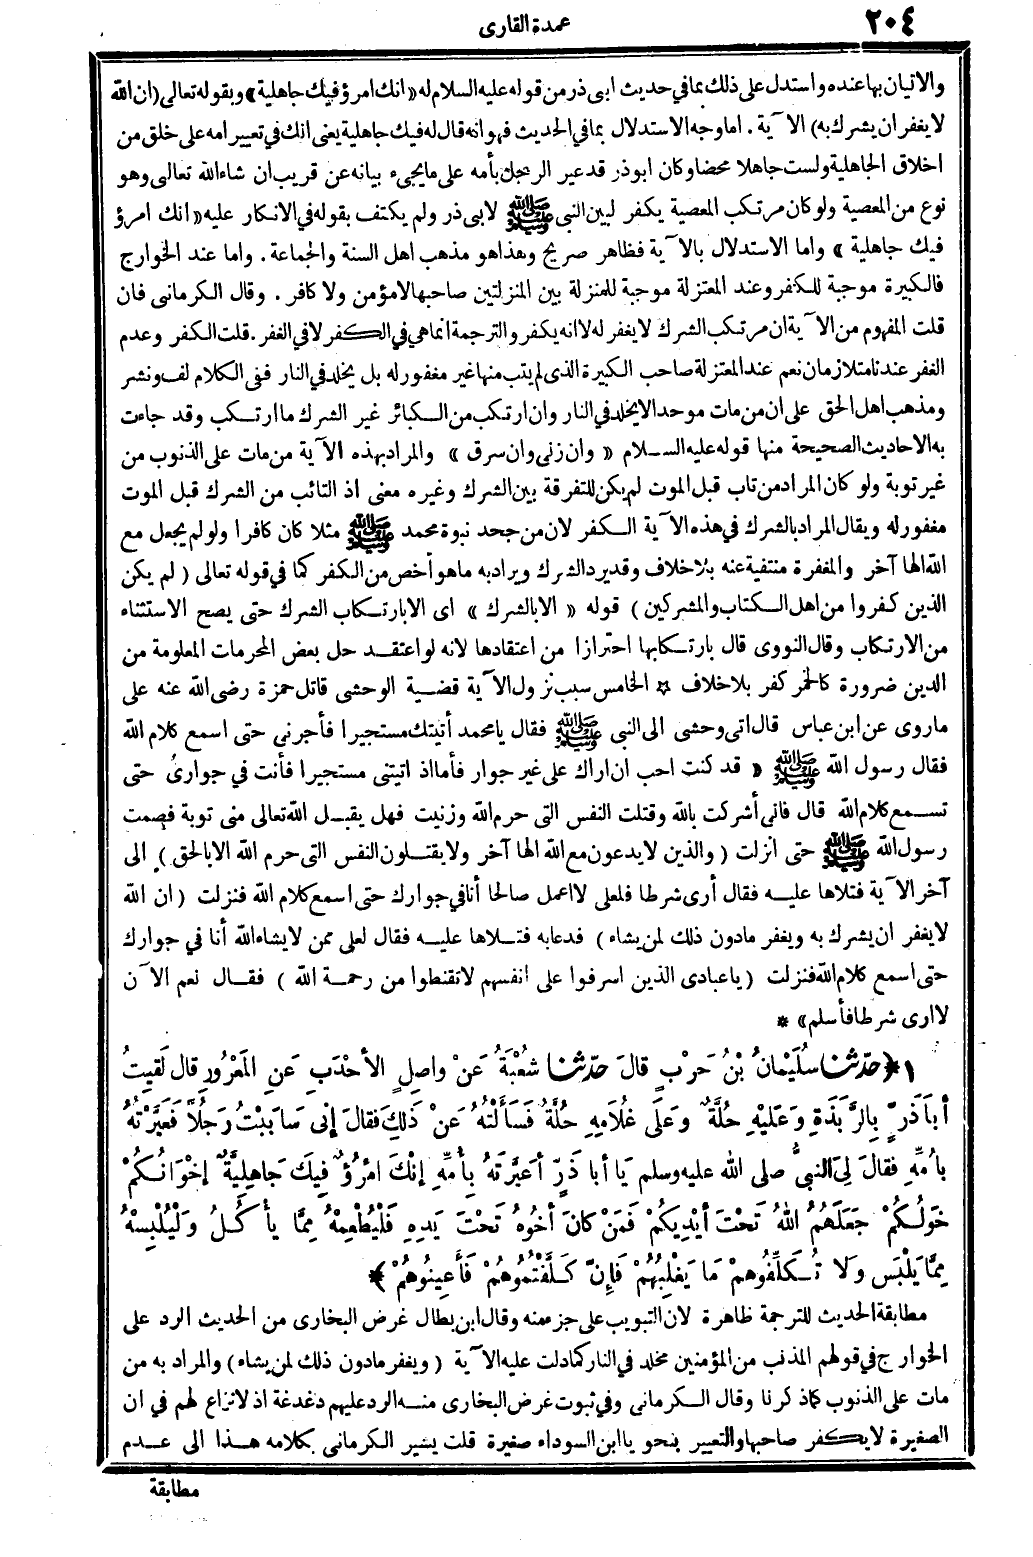 ٢٠٤
عمدة القارى
والاتيان بها عنده واستدل على ذلك بما في حديث ابى ذر من قوله عليه السلام له «انك امرؤ فيك جاهلية» وبقوله تعالى (ان الله
لا يغفر ان يشرك به) الآية. اما وجه الاستدلال بما في الحديث فهو انه قال له فيك جاهلية يعنى انك في تعيير امه على خلق من
اخلاق الجاهلية ولست جاهلا محضا وكان ابو ذر قد عير الرجل بأمه على ما يجىء بيانه عن قريب ان شاء الله تعالى وهو
نوع من المعصية ولو كان مرتكب المعصية يكفر لبين النبى ﷺ لابى ذر ولم يكتف بقوله في الانكار عليه «انك امرؤ
فيك جاهلية» واما الاستدلال بالآية فظاهر صريح وهذا هو مذهب اهل السنة والجماعة. واما عند الخوارج
فالكبيرة موجبة للكفر وعند المعتزلة موجبة للمنزلة بين المنزلتين صاحبها لا مؤمن ولا كافر. وقال الكرمانى فان
قلت المفهوم من الآية ان مرتكب الشرك لا يغفر له لا انه يكفر والترجمة انما هي في الكفر لا في الغفر. قلت الكفر وعدم
الغفر عندنا متلازمان نعم عند المعتزلة صاحب الكبيرة الذى لم يتب منها غير مغفور له بل يخلد في النار ففى الكلام لف ونشر
ومذهب اهل الحق على ان من مات موحدا لا يخلد في النار وان ارتكب من الكبائر غير الشرك ما ارتكب وقد جاءت
به الاحاديث الصحيحة منها قوله عليه السلام «وان زنى وان سرق» والمراد بهذه الآية من مات على الذنوب من
غير توبة ولو كان المراد من تاب قبل الموت لم يكن للتفرقة بين الشرك وغيره معنى اذ التائب من الشرك قبل الموت
مغفور له ويقال المراد بالشرك في هذه الآية الكفر لان من جحد نبوة محمد ﷺ مثلا كان كافرا ولو لم يجعل مع
الله الها آخر والمغفرة منتفية عنه بلا خلاف وقد يرد الشرك ويراد به ما هو أخص من الكفر كما في قوله تعالى (لم يكن
الذين كفروا من اهل الكتاب والمشركين) قوله «الا بالشرك» اى الا بارتكاب الشرك حتى يصح الاستثناء
من الارتكاب وقال النووى قال بارتكابها احترازا من اعتقادها لانه لو اعتقد حل بعض المحرمات المعلومة من
الدين ضرورة كالخمر كفر بلا خلاف ☆ الخامس سبب نزول الآية قضية الوحشى قاتل حمزة رضى الله عنه على
ماروى عن ابن عباس قال اتى وحشى الى النبى ﷺ فقال يا محمد أتيتك مستجيرا فأجرنى حتى اسمع كلام الله
فقال رسول الله ﷺ «قد كنت احب ان اراك على غير جوار فأما اذ اتيتنى مستجيرا فأنت في جوارى حتى
تسمع كلام الله قال فانى أشركت بالله وقتلت النفس التى حرم الله وزنيت فهل يقبل الله تعالى منى توبة فصمت
رسول الله ﷺ حتى انزلت (والذين لا يدعون مع الله الها آخر ولا يقتلون النفس التى حرم الله الا بالحق) الى
آخر الآية فتلاها عليه فقال أرى شرطا فلعلى لا اعمل صالحا أنا في جوارك حتى اسمع كلام الله فنزلت (ان الله
لا يغفر ان يشرك به ويغفر مادون ذلك لمن يشاء) فدعا به فتلاها عليه فقال لعلى ممن لا يشاء الله أنا في جوارك
حتى اسمع كلام الله فنزلت (يا عبادى الذين اسرفوا على انفسهم لا تقنطوا من رحمة الله) فقال نعم الآن
لا ارى شرطا فأسلم» *
١ ﴿حدّثنا سُلَيْمانُ بْنُ حَرْبٍ قالَ حَدّثنا شُعْبَةُ عَنْ واصِلٍ الأَحْدَبِ عَنِ المَعْرُورِ قال لَقِيتُ
أبا ذَرٍّ بِالرَّبَذَةِ وَعَلَيْهِ حُلَّةٌ وَعَلَى غُلَامِهِ حُلَّةٌ فَسَأَلْتُهُ عَنْ ذَلِكَ فقالَ إنِّى سَابَبْتُ رَجُلاً فَعَيَّرْتُهُ
بِأُمِّهِ فقالَ لِىَ النبىُّ صلى الله عليه وسلم يَا أبا ذَرٍّ أعَيَّرْتَهُ بِأُمِّهِ إنَّكَ امْرُؤٌ فِيكَ جَاهِلِيَّةٌ إخْوَانُكُمْ
خَوَلُكُمْ جَعَلَهُمُ اللهُ تَحْتَ أيْدِيكُمْ فَمَنْ كانَ أخُوهُ تَحْتَ يَدِهِ فَلْيُطْعِمْهُ مِمَّا يَأْكُلُ وَلْيُلْبِسْهُ
مِمَّا يَلْبَس وَلَا تُكَلِّفُوهمْ مَا يَغْلِبُهُمْ فَإِنْ كَلَّفْتُمُوهُمْ فَأَعِينُوهُمْ﴾
مطابقة الحديث للترجمة ظاهرة لان التبويب على جزء منه وقال ابن بطال غرض البخارى من الحديث الرد على
الخوارج في قولهم المذنب من المؤمنين مخلد في النار كما دلت عليه الآية (ويغفر مادون ذلك لمن يشاء) والمراد به من
مات على الذنوب كما ذكرنا وقال الكرمانى وفي ثبوت غرض البخارى منه الرد عليهم دغدغة اذ لا نزاع لهم في ان
الصغيرة لا يكفر صاحبها والتعيير بنحو يا ابن السوداء صغيرة قلت يشير الكرمانى بكلامه هذا الى عدم
مطابقة